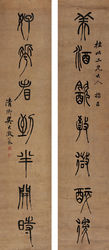 美酒飲教微醉後
好花看到半開時
清卿吳大澂